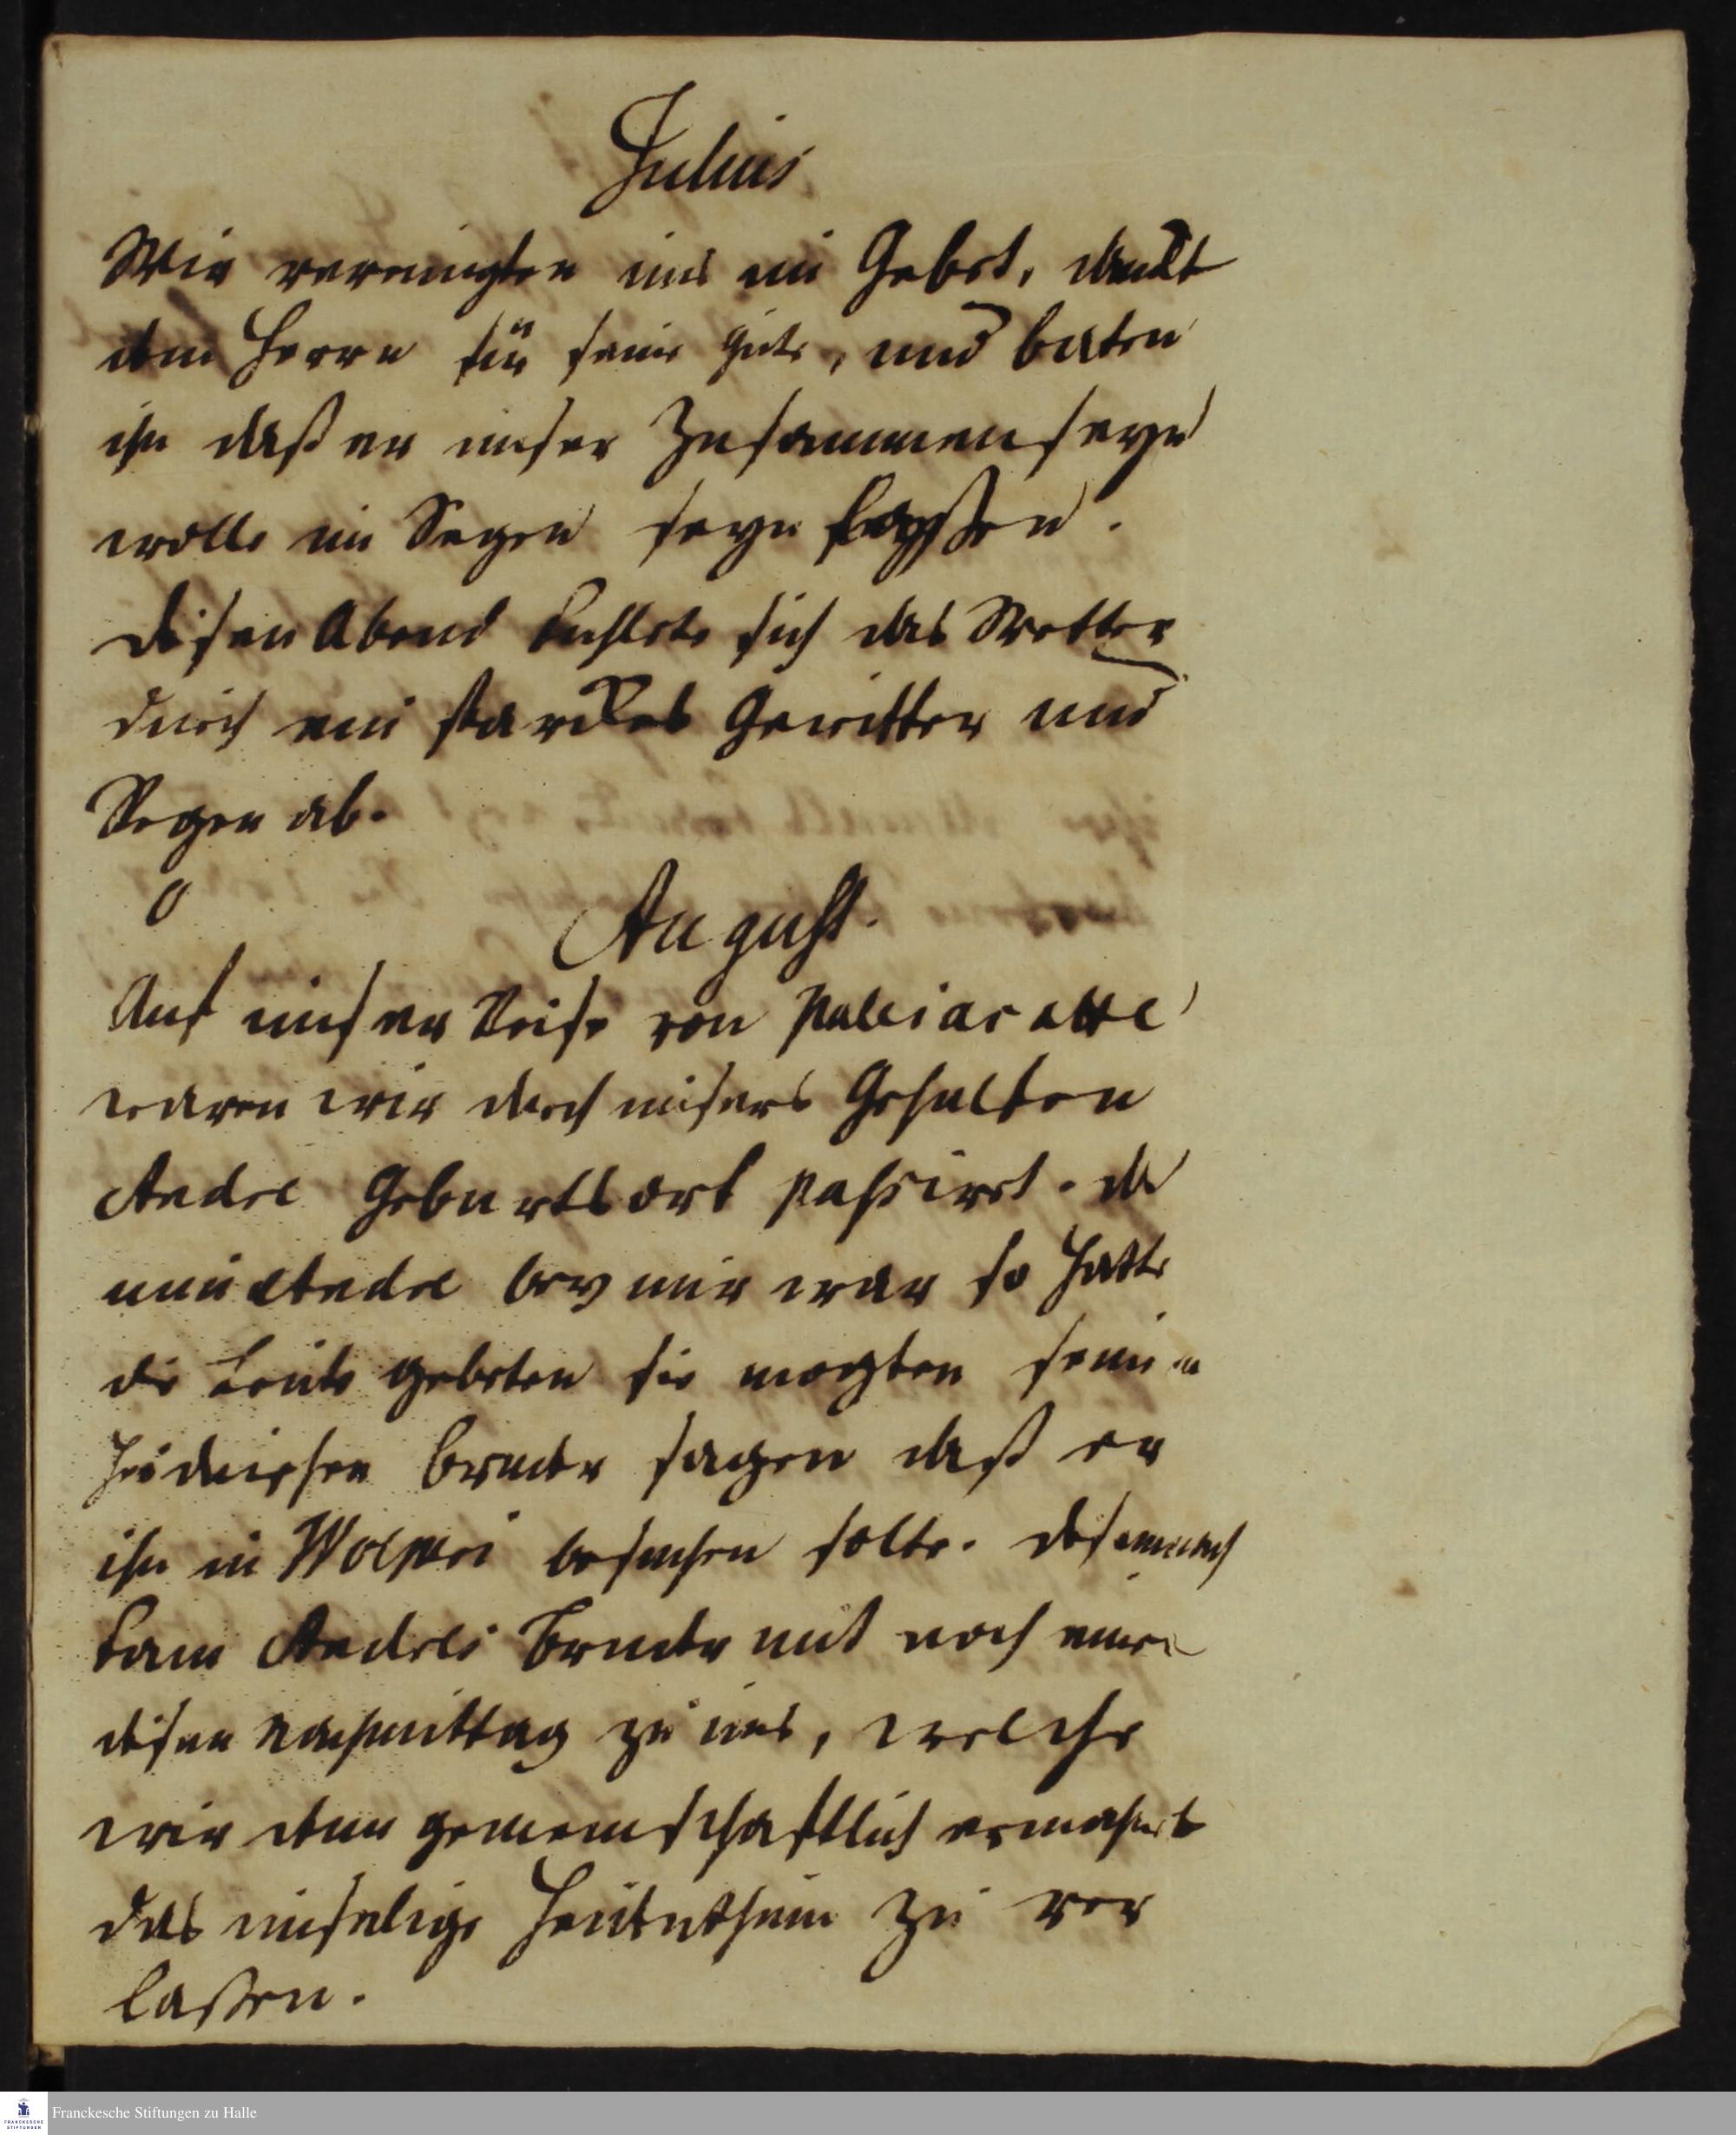 Julius
Wir vereinigten uns im Gebet, danckt
dem Herrn für seine güte, und baten
ihn daß er unser Zusammenseyn
wolle im Segen seyn laßen.
disen Abend kühlete sich das Wetter
durch ein starckes Gewitter und
Regen ab.
August.
Auf unser Reise von Paleiacatte
waren wir durch unsers Gehülfen
Andre Geburtsort passiret. da
nun Andre bey mir war so hatte
die Leute gebeten sie mogten seinen
heidnischen bruder sagen daß er
ihn in Weperi besuchen solte. disemnach
kam Andres Bruder mit noch einen
disen Nachmittag zu uns, welche
wir dann gemeinschaftlich ermahnt
das unselige Heidenthum zu ver
laßen.
Franckesche Stiftungen zu Halle